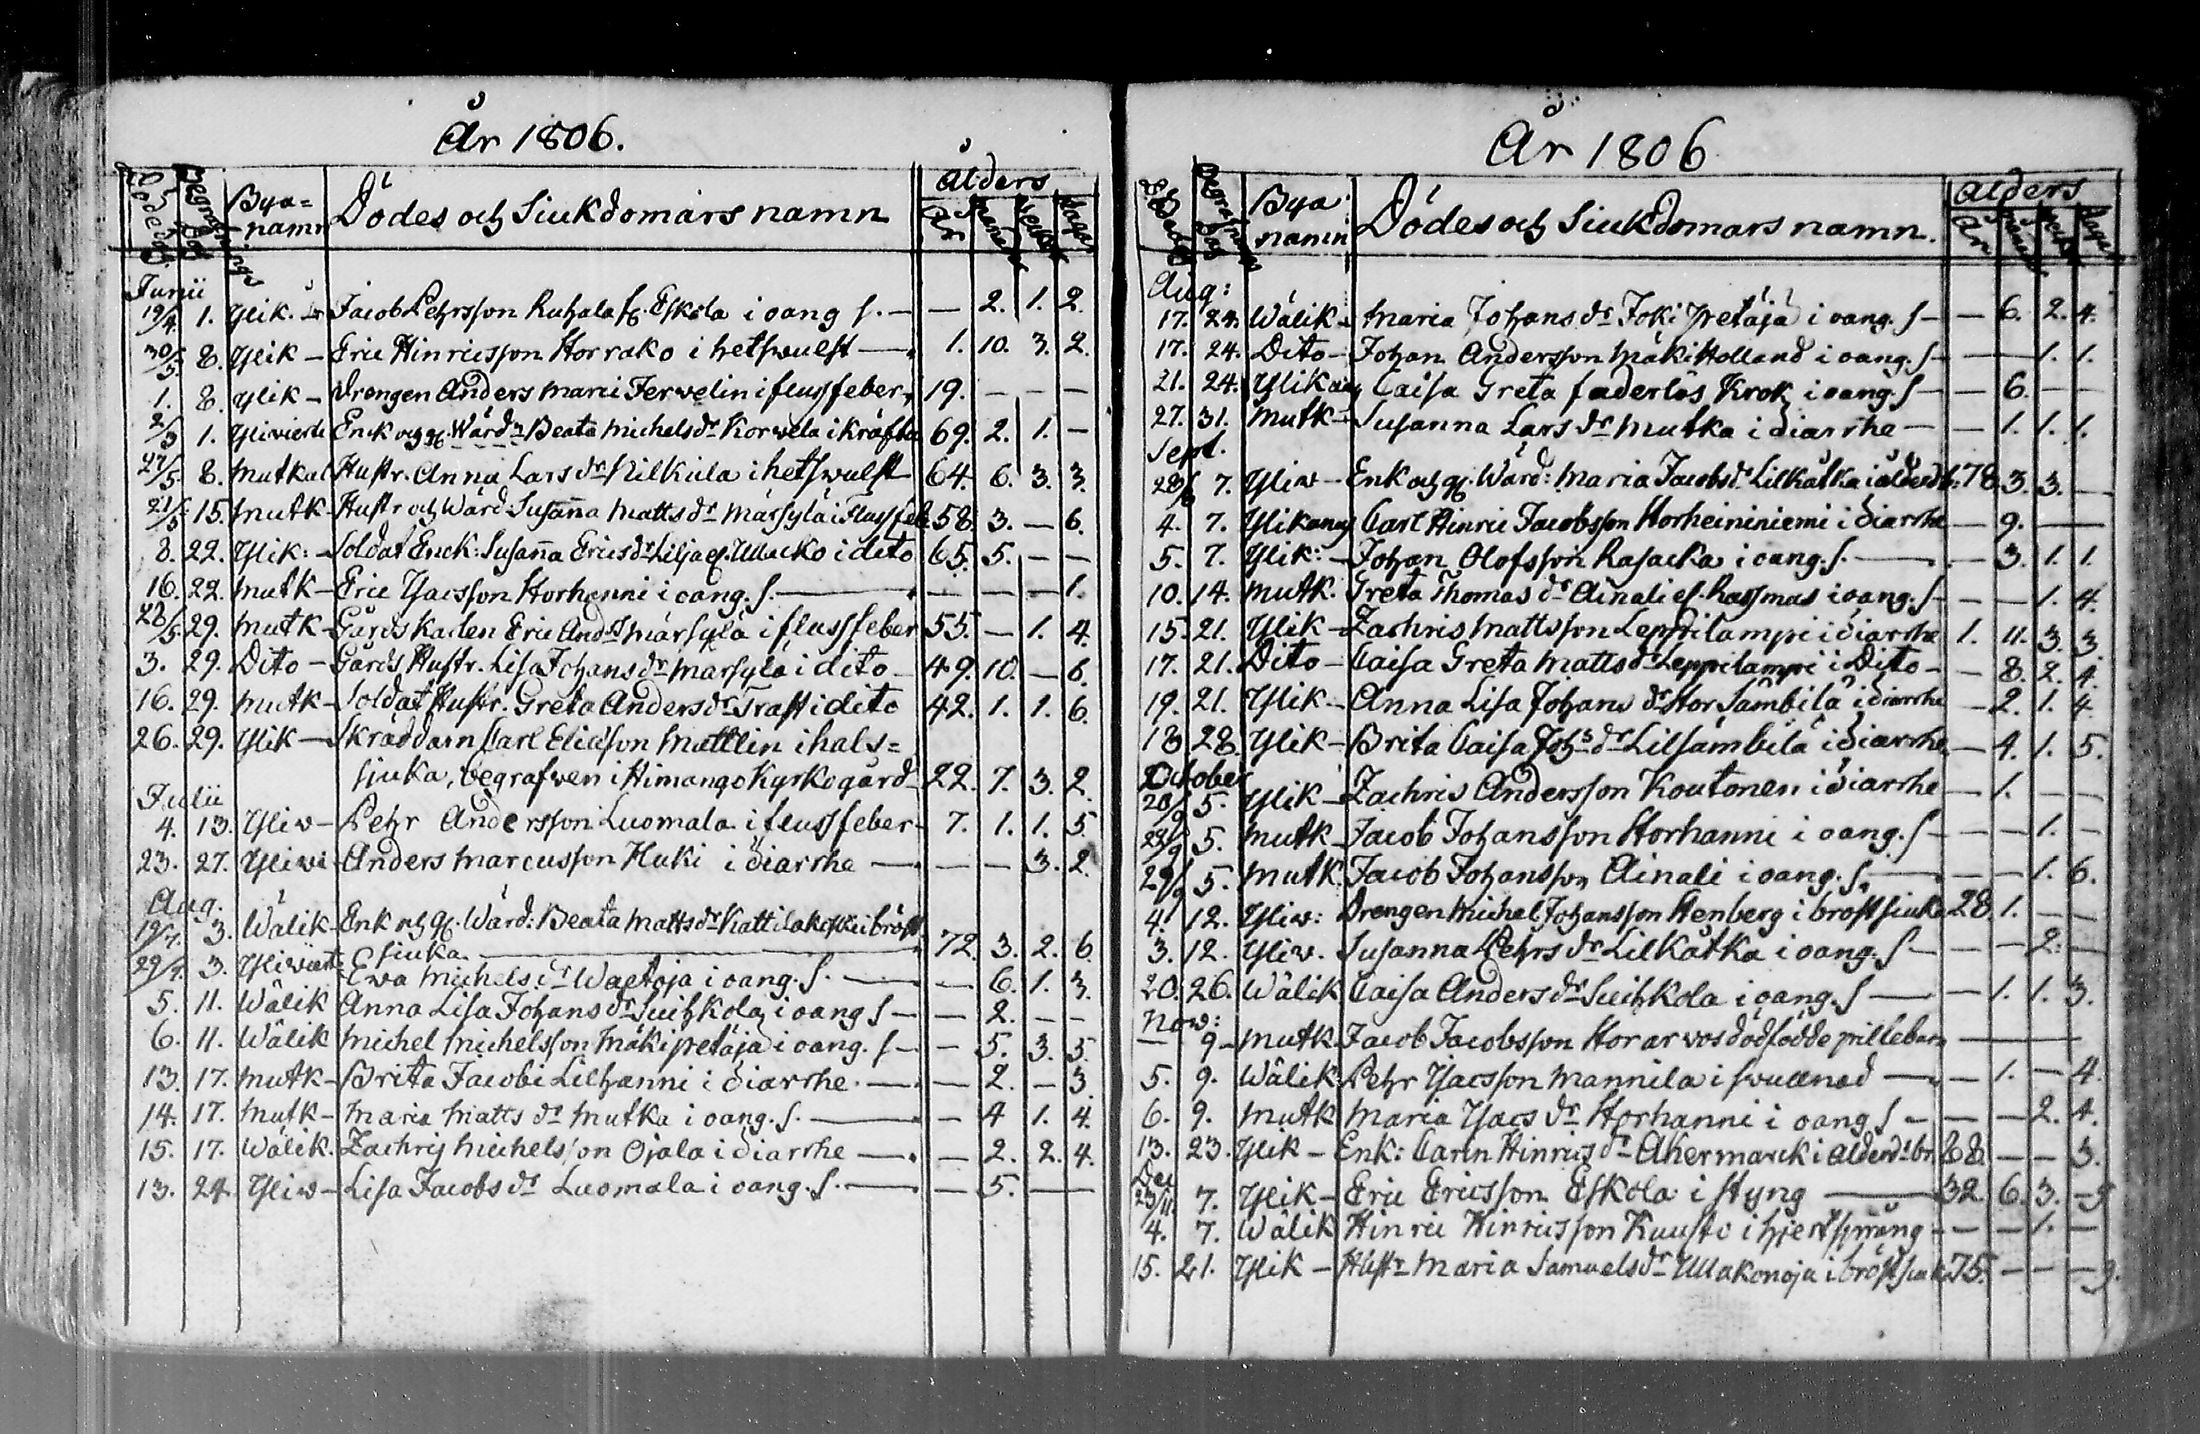 År 1806.
Döde dag. Begrafnings dag Bya=namn Dödes och Siukdomars namn ålders År månad veckor dagar
Junii
19/4. 1. Ylik. Jacob Pehrsson Ruhala f. Eskola i oang s. — — 2. 1. 2.
30/5. 8. Ylik — Eric Hinricsson Storrako i hetswulst — 1. 10. 3. 2.
1. 8. Ylik — Drengen Anders Marci Ferwelin i flussfeber, 19. — — —
2/3 1. Ylivierk Enk och gl. Wärd:n Beata Michelsdr Korwela i kräfta 69. 2. 1. —
27/5. 8. Mutkal Hustr. Anna Larsdr Nilkula i hetswulst 64. 6. 3. 3.
21/5. 15. Mutk- Hustr och Wärd. Susanna Mattsdr Märsylä i Flussfeb 58. 3. — 6.
8. 22. Ylik: — Soldat Enck: Susanna Ericsdr Lilja ef. Ullacko i dito 65. 5. — —
16. 22. Mutk — Eric Yacsson Storhanni i oang. s. — — — — 1.
28/5 29. Mutk — Gårdskarlen Eric Ands Märsylä i flussfeber 55. — 1. 4.
3. 29. Dito — Gårds Hustr. Lisa Johansdr Märsylä i dito — 49. 10. — 6.
16. 29. Mutk — Soldat Hustr. Greta Andersdr Trast i dito 42. 1. 1. 6.
26. 29. Ylik — Skräddarn Carl Elicsson Mattlin i hals=
sjuka, begrafwen i Himango Kyrkogård 22. 7. 3. 2.
Julii
4. 13. Yliw — Pehr Andersson Luomala i flussfeber — 7. 1. 1. 5.
23. 27. Yliwi — Anders Marcusson Huki i diarrhe — — — 3. 2.
Aug.
19/7. 3. Wälik — Enk och gl. Wärd: Beata Mattsdr Kattilakoski i bröst
siuka — 72. 3. 2. 6.
29/7. 3. Yliwiert Ewa Michelsdr Waetoja i oang. s. — — 6. 1. 3.
5. 11. Wälik Anna Lisa Johansdr Suihkola i oang s — — 2. — —
6. 11. Wälik Michel Michelsson Mäkipetäjä i oang. s — — 5. 3. 5.
13. 17. Mutk — Brita Jacobi Lilhanni i diarrhe. — — 2. — 3.
14. 17. Mutk — Maria Matts dr Mutka i oang. s. — — 4 1. 4.
15. 17. Wälik. Zachrij Michelsson Ojala i diarrhe — — 2. 2. 4.
13. 24. Yliw — Lisa Jacobs dr Luomala i oang. s. — — 5. — —
År 1806
Döde dag Begrafnings dag Bya namn Dödes och Siukdomars namn. ålders År månad veckor dagar
Aug:
17. 24. Wälik — Maria Johansdr Jokipetäjä i oang. s — — 6. 2. 4.
17. 24. Dito — Johan Andersson Mäki Holland i oang. s — — — 1. 1.
21. 24. Ylikang Caisa Greta faderlös Krok i oang. s — — 6. — —
27. 31. Mutk — Susanna Lars dr Mutka i diarrhe — — 1. 1. 1.
Sept.
28/8 7. Yliw — Enk och gl. Wärd: Maria Jacobsdr Lilkätka i ålderd.b: 78 3. 3. —
4. 7. Ylikang Carl Hinric Jacobsson Storheininiemi i diarrhe — 9. — —
5. 7. Ylik: — Johan Olofsson Rasacka i oang. s. — — 3. 1. 1.
10. 14. Mutk. Greta Thomas dr Ainali ef. Rassmas i oang. s — — — 1. 4.
15. 21. Ylik — Zachris Mattsson Leppilampi i diarrhe 1. 11. 3. 3.
17. 21. Dito — Caisa Greta Mattsdr Leppilampi i Dito — — 8. 2. 4.
19. 21. Ylik — Anna Lisa Johans dr Stor Sämbilä i diarrhe — 2. 1. 4.
18 28 Ylik — Brita Caisa Johs dr Lilsämbilä i diarrhe — 4. 1. 5.
October
20/9 5. Ylik — Zachris Andersson Koutonen i diarrhe — 1. — —
22/9 5. Mutk — Jacob Johansson Storhanni i oang. s — — — 1. —
29/9 5. Mutk. Jacob Johansson Ainali i oang. s. — — — 1. 6.
4. 12. Yliw: Drengen Michel Johansson Stenberg i bröstsiuka 28. 1. — —
3. 12. Yliw. Susanna Pehrs dr Lilkätka i oang. s — — — 2. —
20. 26. Wälik Caisa Anders dr Suihkola i oang. s — — 1. 1. 3.
Now:
— 9 — Mutk. Jacob Jacobsson Storarvos dödfödde pillebarn — — — —
5. 9. Wälik Pehr Yacsson Mannila i swullnad — — 1. — 4.
6. 9. Mutk Maria Yacs dr Storhanni i oang s — — — 2. 4.
13. 23. Ylik — Enk: Carin Hinricsdr Akermarck i ålderd: br. 88 — — 3.
Dec
23/11. 7. Ylik — Eric Ericsson Eskola i styng — 32. 6. 3. —
4. 7. Wälik Hinric Hinricsson Kuusto i hjertsprång — — — 1. —
15. 21. Ylik — Hustr Maria Samuelsdr Ullakonoja i bröstsiuk 75. — — —